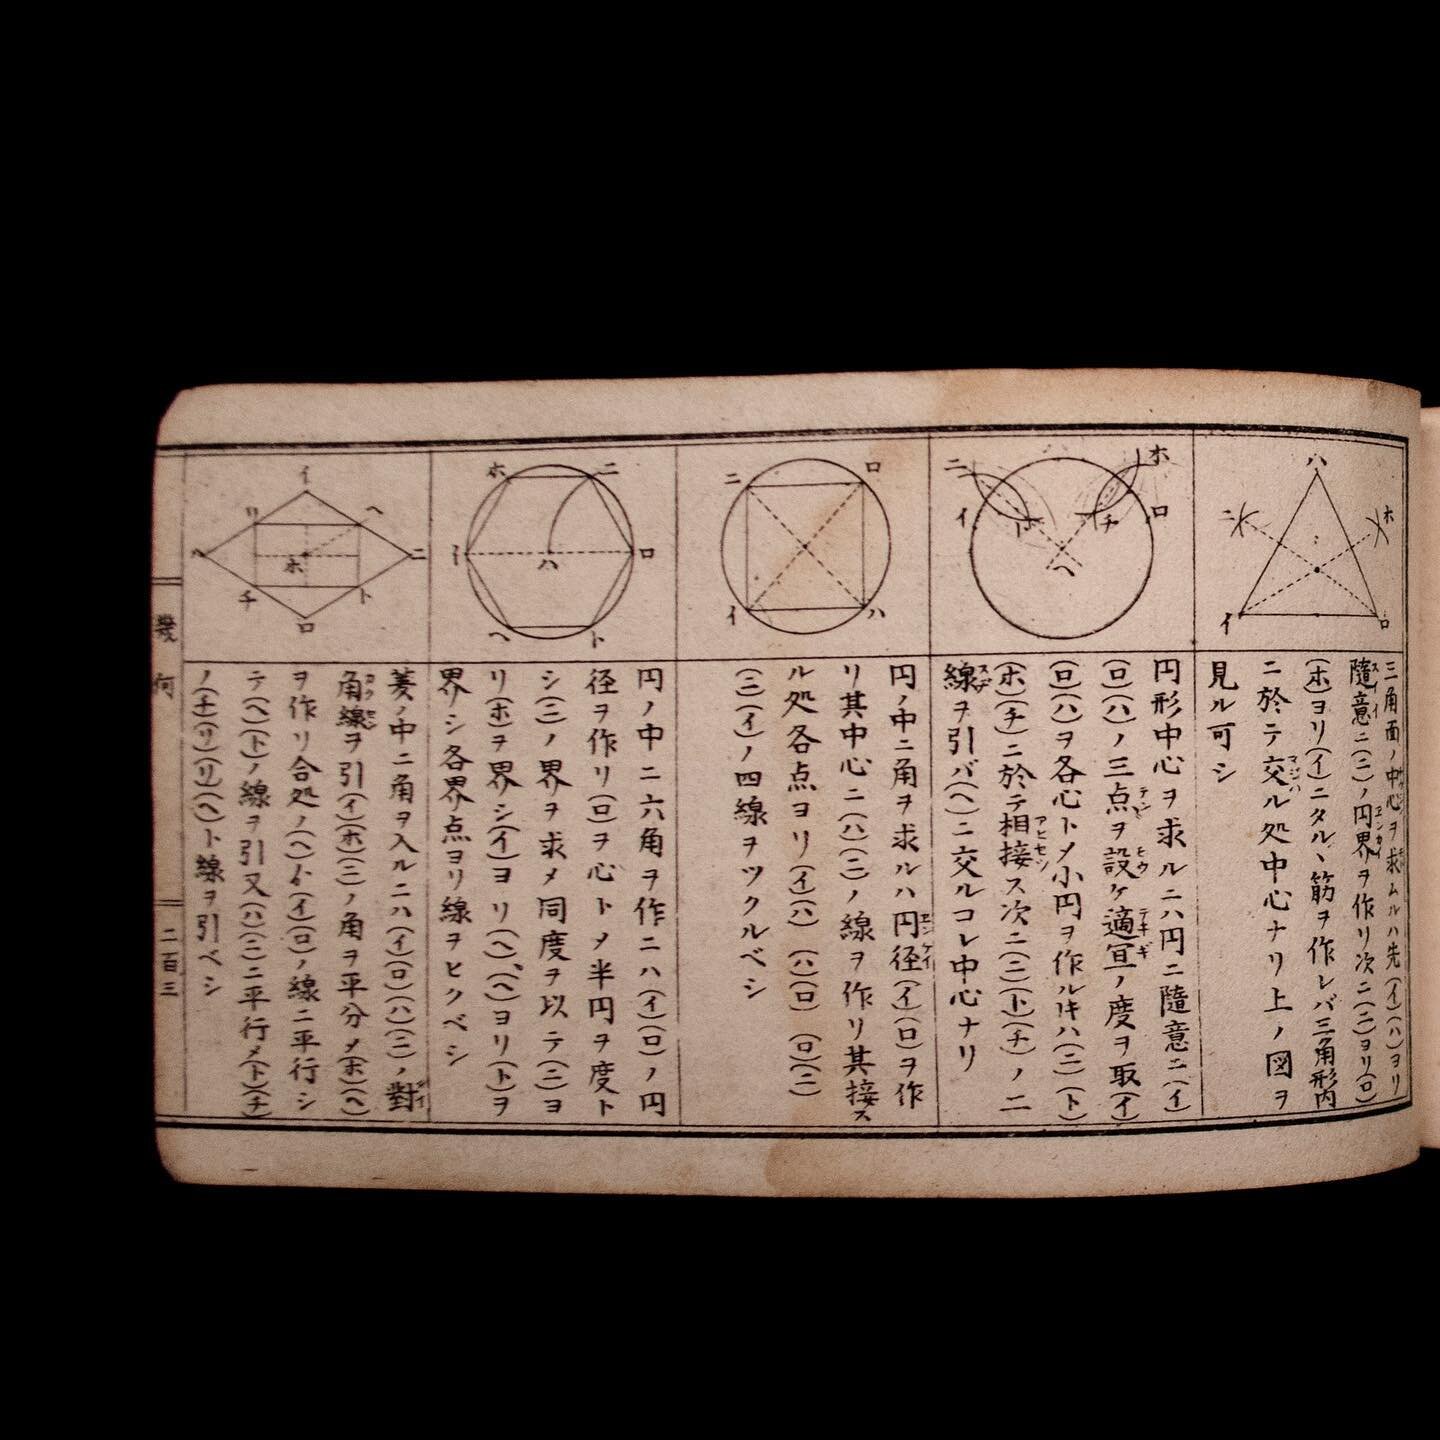 ハ
ニ
ホ
イ
ロ
三角面ノ中心ヲ求ムルハ先(イ)(ハ)ヨリ
隨意ニ(ニ)ノ円界ヲ作リ次ニ(ニ)ヨリ(ロ)
(ホ)ヨリ(イ)ニタルヽ筋ヲ作レバ三角形内
ニ於テ交ル処中心ナリ上ノ図ヲ
見ル可シ
ホ
ニ
イ
ト
チ
ロ
ヘ
ハ
円形中心ヲ求ルニハ円ニ隨意ニ(イ)
(ロ)(ハ)ノ三点ヲ設ケ適宜ノ度ヲ取(イ)
(ロ)(ハ)ヲ各心トメ小円ヲ作ルキハ(ニ)(ト)
(ホ)(チ)ニ於テ相接ス次ニ(ニ)(ト)(チ)ノ二
線ヲ引バ(ヘ)ニ交ルコレ中心ナリ
ロ
ニ
イ
ハ
円ノ中ニ角ヲ求ルハ円径(イ)(ロ)ヲ作
リ其中心ニ(ハ)(ニ)ノ線ヲ作リ其接ス
ル処各点ヨリ(イ)(ハ)(ハ)(ロ)(ロ)(ニ)
(ニ)(イ)ノ四線ヲツクルベシ
ホ
ニ
イ
ハ
ロ
ヘ
ト
円ノ中ニ六角ヲ作ニハ(イ)(ロ)ノ円
径ヲ作リ(ロ)ヲ心トメ半円ヲ度ト
シ(ニ)ノ界ヲ求メ同度ヲ以テ(ニ)ヨ
リ(ホ)ヲ界シ(イ)ヨリ(ヘ)(ヘ)ヨリ(ト)ヲ
界シ各界点ヨリ線ヲヒクベシ
イ
リ
ヘ
ハ
ホ
ニ
チ
ト
ロ
菱ノ中ニ角ヲ入ルニハ(イ)(ロ)(ハ)(ニ)ノ對
角線ヲ引(イ)(ホ)(ニ)ノ角ヲ平分メ(ホ)(ヘ)
ヲ作リ合処ノ(ヘ)ト(イ)(ロ)ノ線ニ平行シ
テ(ヘ)(ト)ノ線ヲ引又(ハ)(ニ)ニ平行メ(ト)(チ)
ノ(チ)(リ)(リ)(ヘ)ト線ヲ引ベシ
幾何
二百三